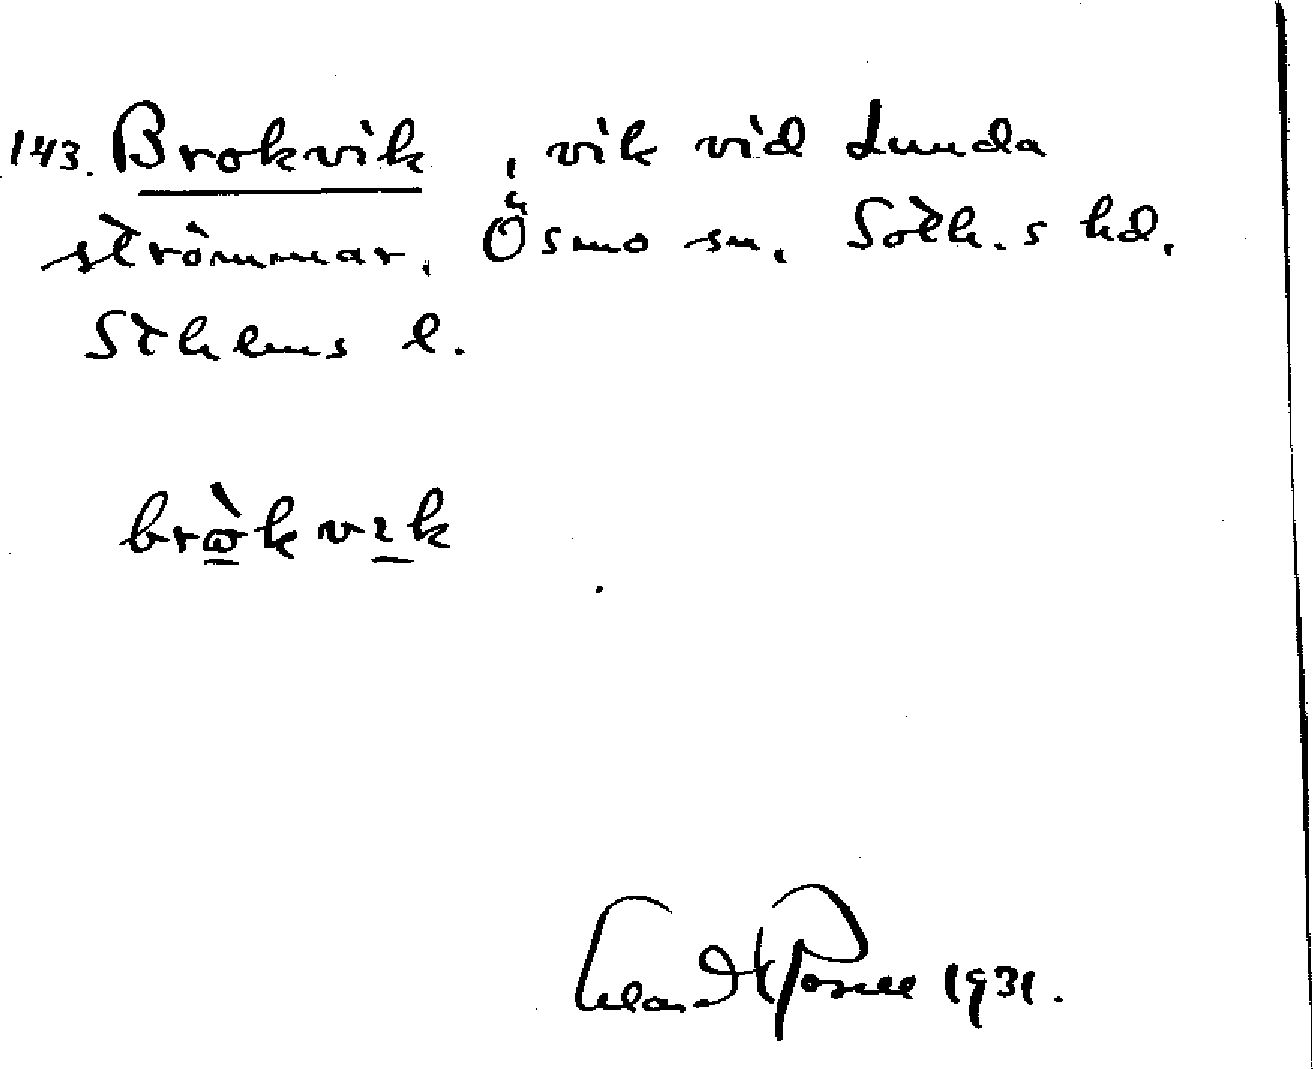 143. Brokvik, vik vid Lunda
strömmar. Ösmo sn. Soth.s hd.
Sthlms l.
bròkvik
1931.